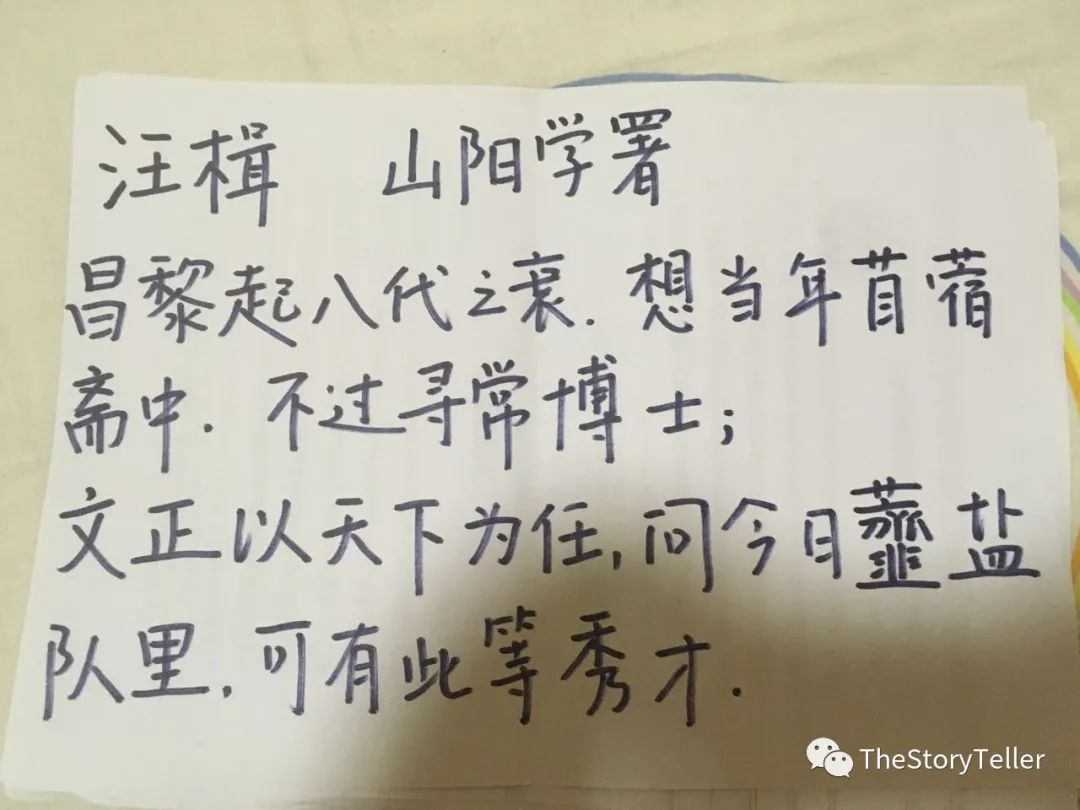 汪楫 山阳学署
昌黎起八代之衰.想当年苜蓿
斋中.不过寻常博士;
文正以天下为任,问今日虀盐
队里.可有此等秀才.
TheStoryTeller